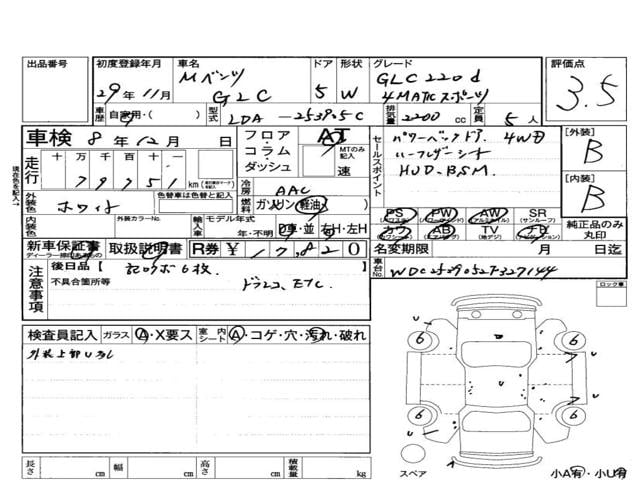 出品番号
初度登録年月
29年11月
車名
Mベンツ
GLC
ドア
5
形状
W
グレード
GLC220d
4MATICスポーツ
評価点
3.5
車歴
自家用・( )
型式
LDA-253905C
排気量
2200 cc
定員
5人
車検 8年12月 日
フロア・コラム・ダッシュ
AT
MTのみ記入
速
セールスポイント
パワーバックドア. 4WD
ハーフレザーシート
HUD. BSM.
[外装]
B
[内装]
B
走行
十 万 千 百 十 一
79751
km
冷房
AAC
燃料
ガソリン・軽油
外装色
ホワイト
色替車は色替と記入
内装色
外装カラーNo.
輸入車
モデル年式
年・不明
D車・並
右H・左H
PS PW AW SR
(サンルーフ)
カワ AB TV ナビ
純正品のみ丸印
新車保証書
取扱説明書
R券 ¥ 17,820
名変期限 月 日迄
車台No.
WDC2539052F327144
注意事項
後日品【記録簿6枚. 】
不具合箇所等
ドラレコ、ETC.
現在色を記入
ロック車
検査員記入
ガラス A・X要ス
室内シート A・コゲ・穴・汚れ・破れ
外装上部Uあり
6
6
6
6
U
U
U
A
スペア
小A有・小U有
長さ cm 幅 cm 高さ cm 積載量 kg